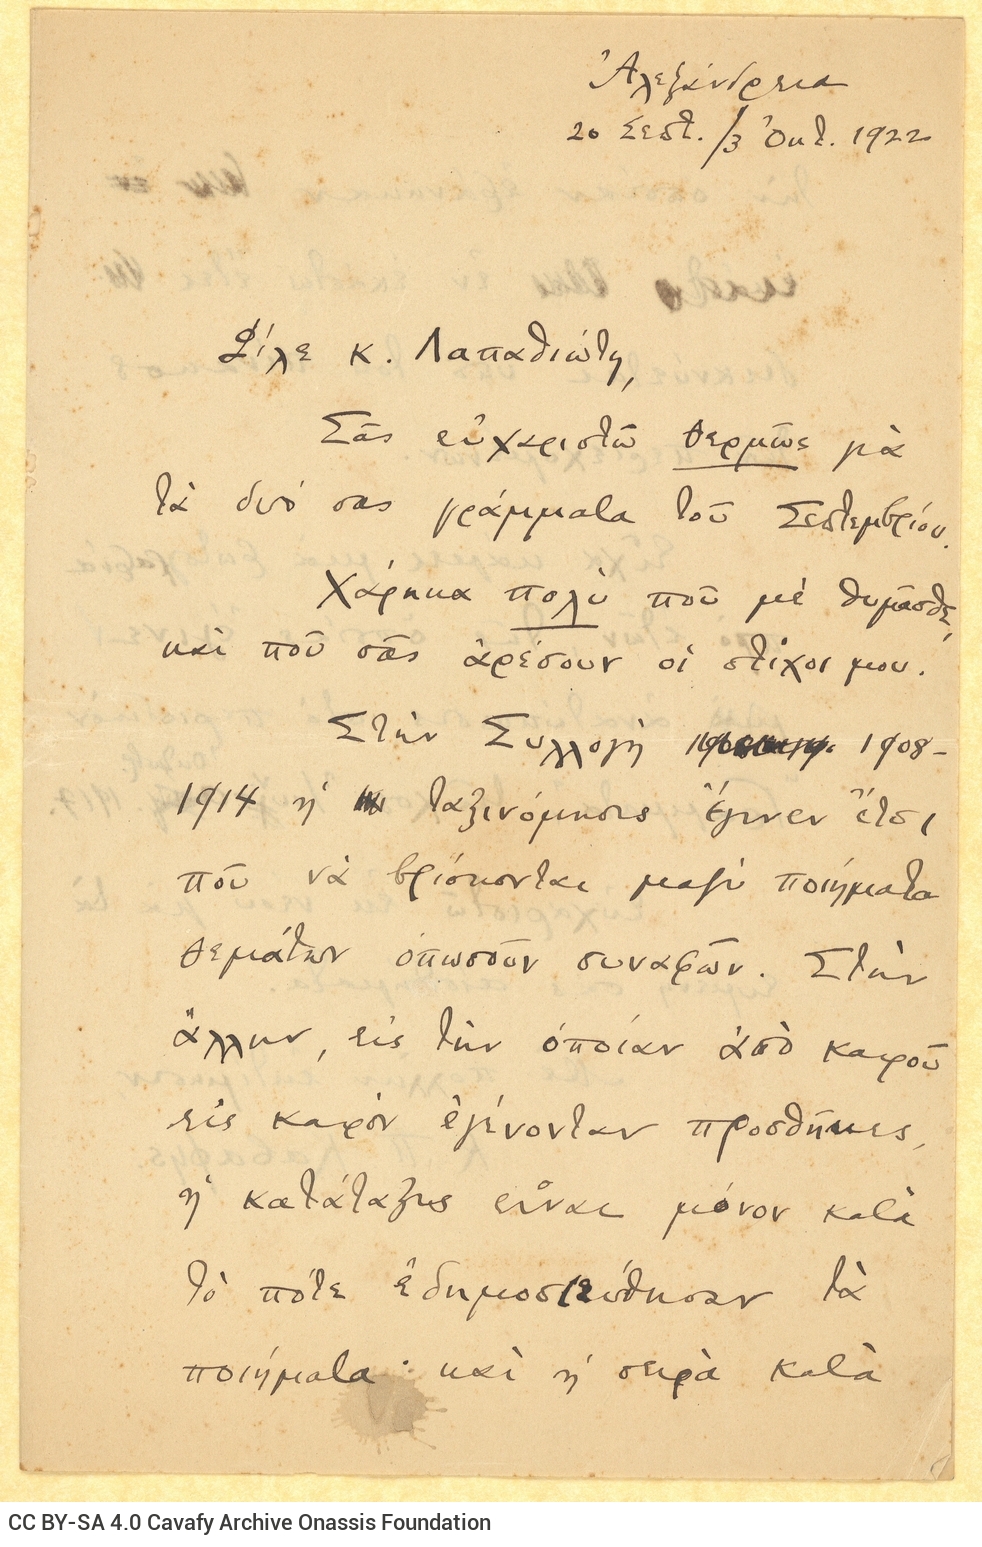 Ἀλεξάνδρεια
20 Σεπτ./3 Ὀκτ. 1922
Φίλε κ. Λαπαθιώτη,
Σᾶς εὐχαριστῶ θερμῶς γιὰ
τὰ δυό σας γράμματα τοῦ Σεπτεμβρίου.
Χάρηκα πολὺ ποῦ μὲ θυμᾶσθε,
καὶ ποῦ σᾶς ἀρέσουν οἱ στίχοι μου.
Στὴν Συλλογὴ 1908-
1914 ἡ ταξινόμησις ἔγινεν ἔτσι
ποῦ νὰ βρίσκονται μαζὺ ποιήματα
θεμάτων ὁπωσοῦν συναφῶν. Στὴν
ἄλλην, εἰς τὴν ὁποίαν ἀπὸ καιροῦ
εἰς καιρὸν ἐγένονταν προσθῆκες,
ἡ κατάταξις εἶναι μόνον κατὰ
τὸ πότε ἐδημοσιεύθησαν τὰ
ποιήματα· καὶ ἡ σειρὰ κατὰ
CC BY-SA 4.0 Cavafy Archive Onassis Foundation